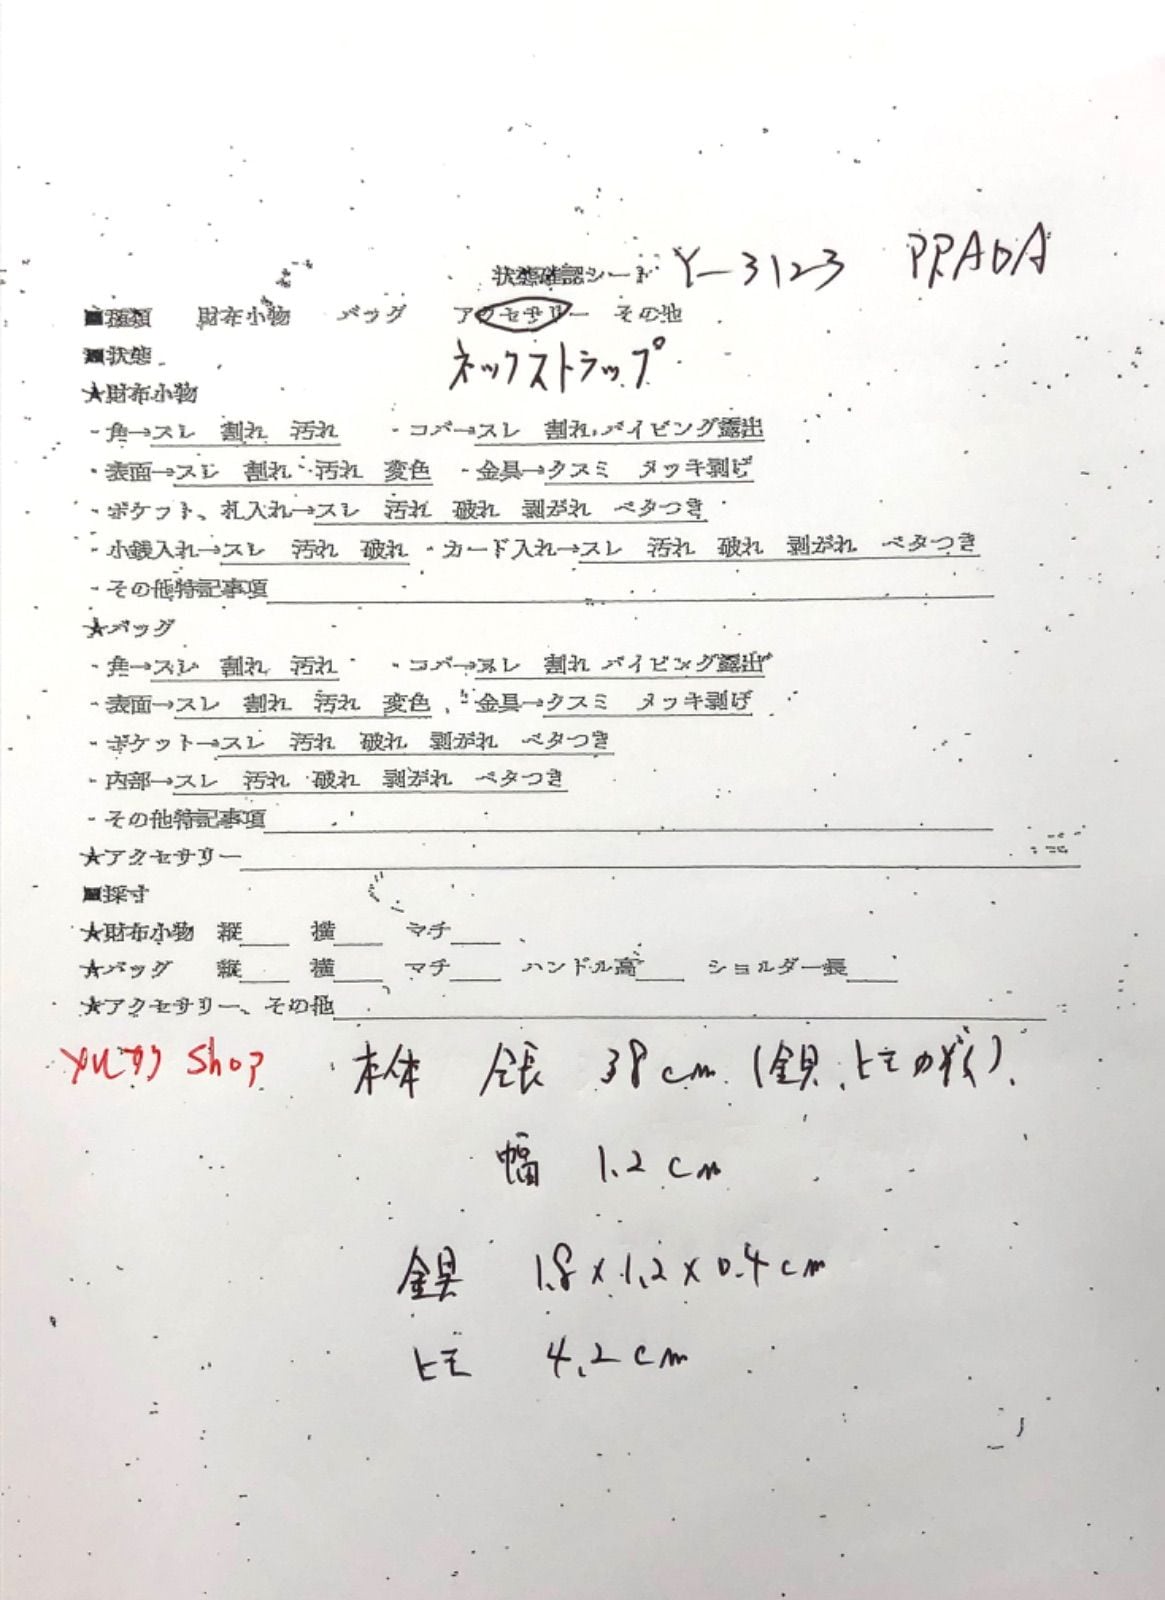 状態確認シート Y-3123 PRADA
■種類 財布小物 バッグ アクセサリー その他
■状態 ネックストラップ
★財布小物
・角→スレ 割れ 汚れ ・コバ→スレ 割れ パイピング露出
・表面→スレ 割れ 汚れ 変色 ・金具→クスミ メッキ剥げ
・ポケット、札入れ→スレ 汚れ 破れ 剥がれ ベタつき
・小銭入れ→スレ 汚れ 破れ ・カード入れ→スレ 汚れ 破れ 剥がれ ベタつき
・その他特記事項
★バッグ
・角→スレ 割れ 汚れ ・コバ→スレ 割れ パイピング露出
・表面→スレ 割れ 汚れ 変色 ・金具→クスミ メッキ剥げ
・ポケット→スレ 汚れ 破れ 剥がれ ベタつき
・内部→スレ 汚れ 破れ 剥がれ ベタつき
・その他特記事項
★アクセサリー
■採寸
★財布小物 縦 横 マチ
★バッグ 縦 横 マチ ハンドル高 ショルダー長
★アクセサリー、その他
Shop 本体 全長 38cm (金具、ヒモ
幅 1.2cm
金具 1.8×1.2×0.4cm
ヒモ 4.2cm